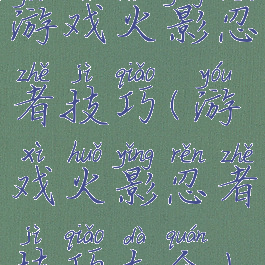 游戏火影忍
zhě jì qiǎo yóu
者技巧(游
xì huǒ yǐng rěn zhě
戏火影忍者
jì qiǎo dà quán
技巧大全)